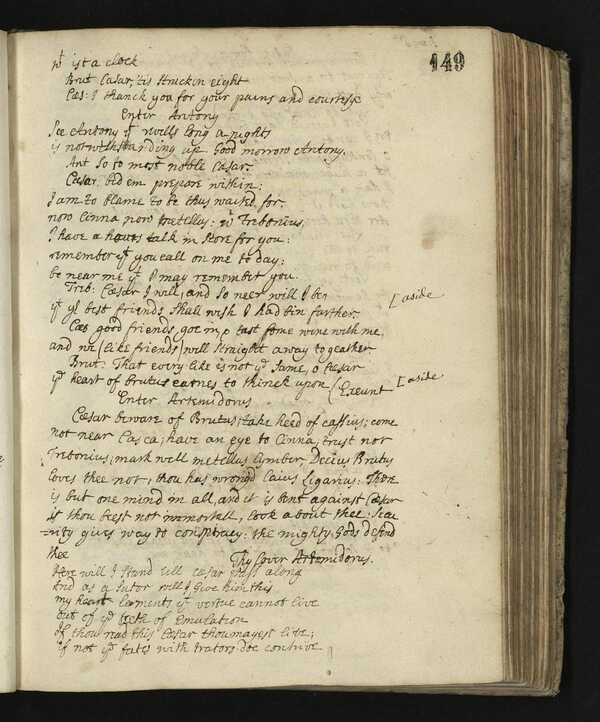 149
wt ist a clock
Brut Cæsar, 'tis strucken eight
Cæs: I thanck you for your pains and courtesye
Enter Antony
See Antony yt revells long a nights
is notwithstanding up. Good morrow Antony.
Ant So to most noble Cæsar.
Cæsar: bid em prepare within:
I am to blame to be thus waited for.
now Cinna now metellus: wt Trebonius
I have a hours talk in store for you:
remember yt you call on me to day:
be near me yt I may remember you.
Treb: Cæsar I will, and so neer will I be
yt yr best friends shall wish I had bin further.
[aside
Cæs good friends goe in, tast some wine with me,
and we (like friends) will straight away togeather
Brut: That every like is not ye same, o Cæsar
ye heart of Brutus earnes to thinck upon (Exeunt
[aside
Enter Artemidorus
Cæsar beware of Brutus, take heed of cassius; come
not near Casca; have an eye to Cinna, trust not
Trebonius, mark well metellus Cymber, Decius Brutus
loves thee not, thou has wrong'd Caius Ligarius: There
is but one mind in all, and it is bent against Cæsar
if thou beest not immortall, look about thee: Secu
=rity gives way to conspiracy: the mighty Gods defend
thee
Thy Lover Artemidorus.
Here will I stand till cæsar pass along
And as a sutor will I give him this
my heart laments, yt vertue cannot live
out of ye teeth of Emulation
If thou read this Cæsar thou mayest live;
if not ye fates with traitors doe contrive